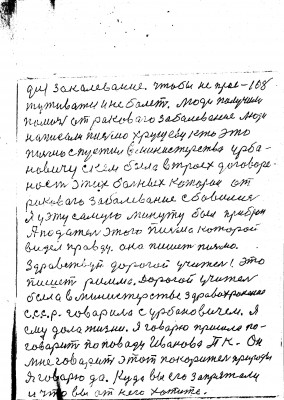 ди) Заколевание. чтобы не прое- 108
туживати и не болет. Люди получили
помочь от раковаго заболевание люди
написали письмо хрущеву кто это
письмо спустил в министерства урба-
новичу с кем была в троех договоре-
ность этих больных которои от
раковаго заболевание сбавился
Я у эту самую минуту был
Я подател этого письма которой
видел правду. она пишет письмо.
Здравствуй дорогой учител! это
пишет римма. дорогой учител
была в министерстве здравохранение
с.с.с.р. говорила с урбановичем. Я
ему дала жизни. Я говорю пришла по-
говорит по поводу Иванова П.К. Он
мне говорит этот покорител природы
Я говорю да. Куда вы его запрятали
и что вы от него хотите.